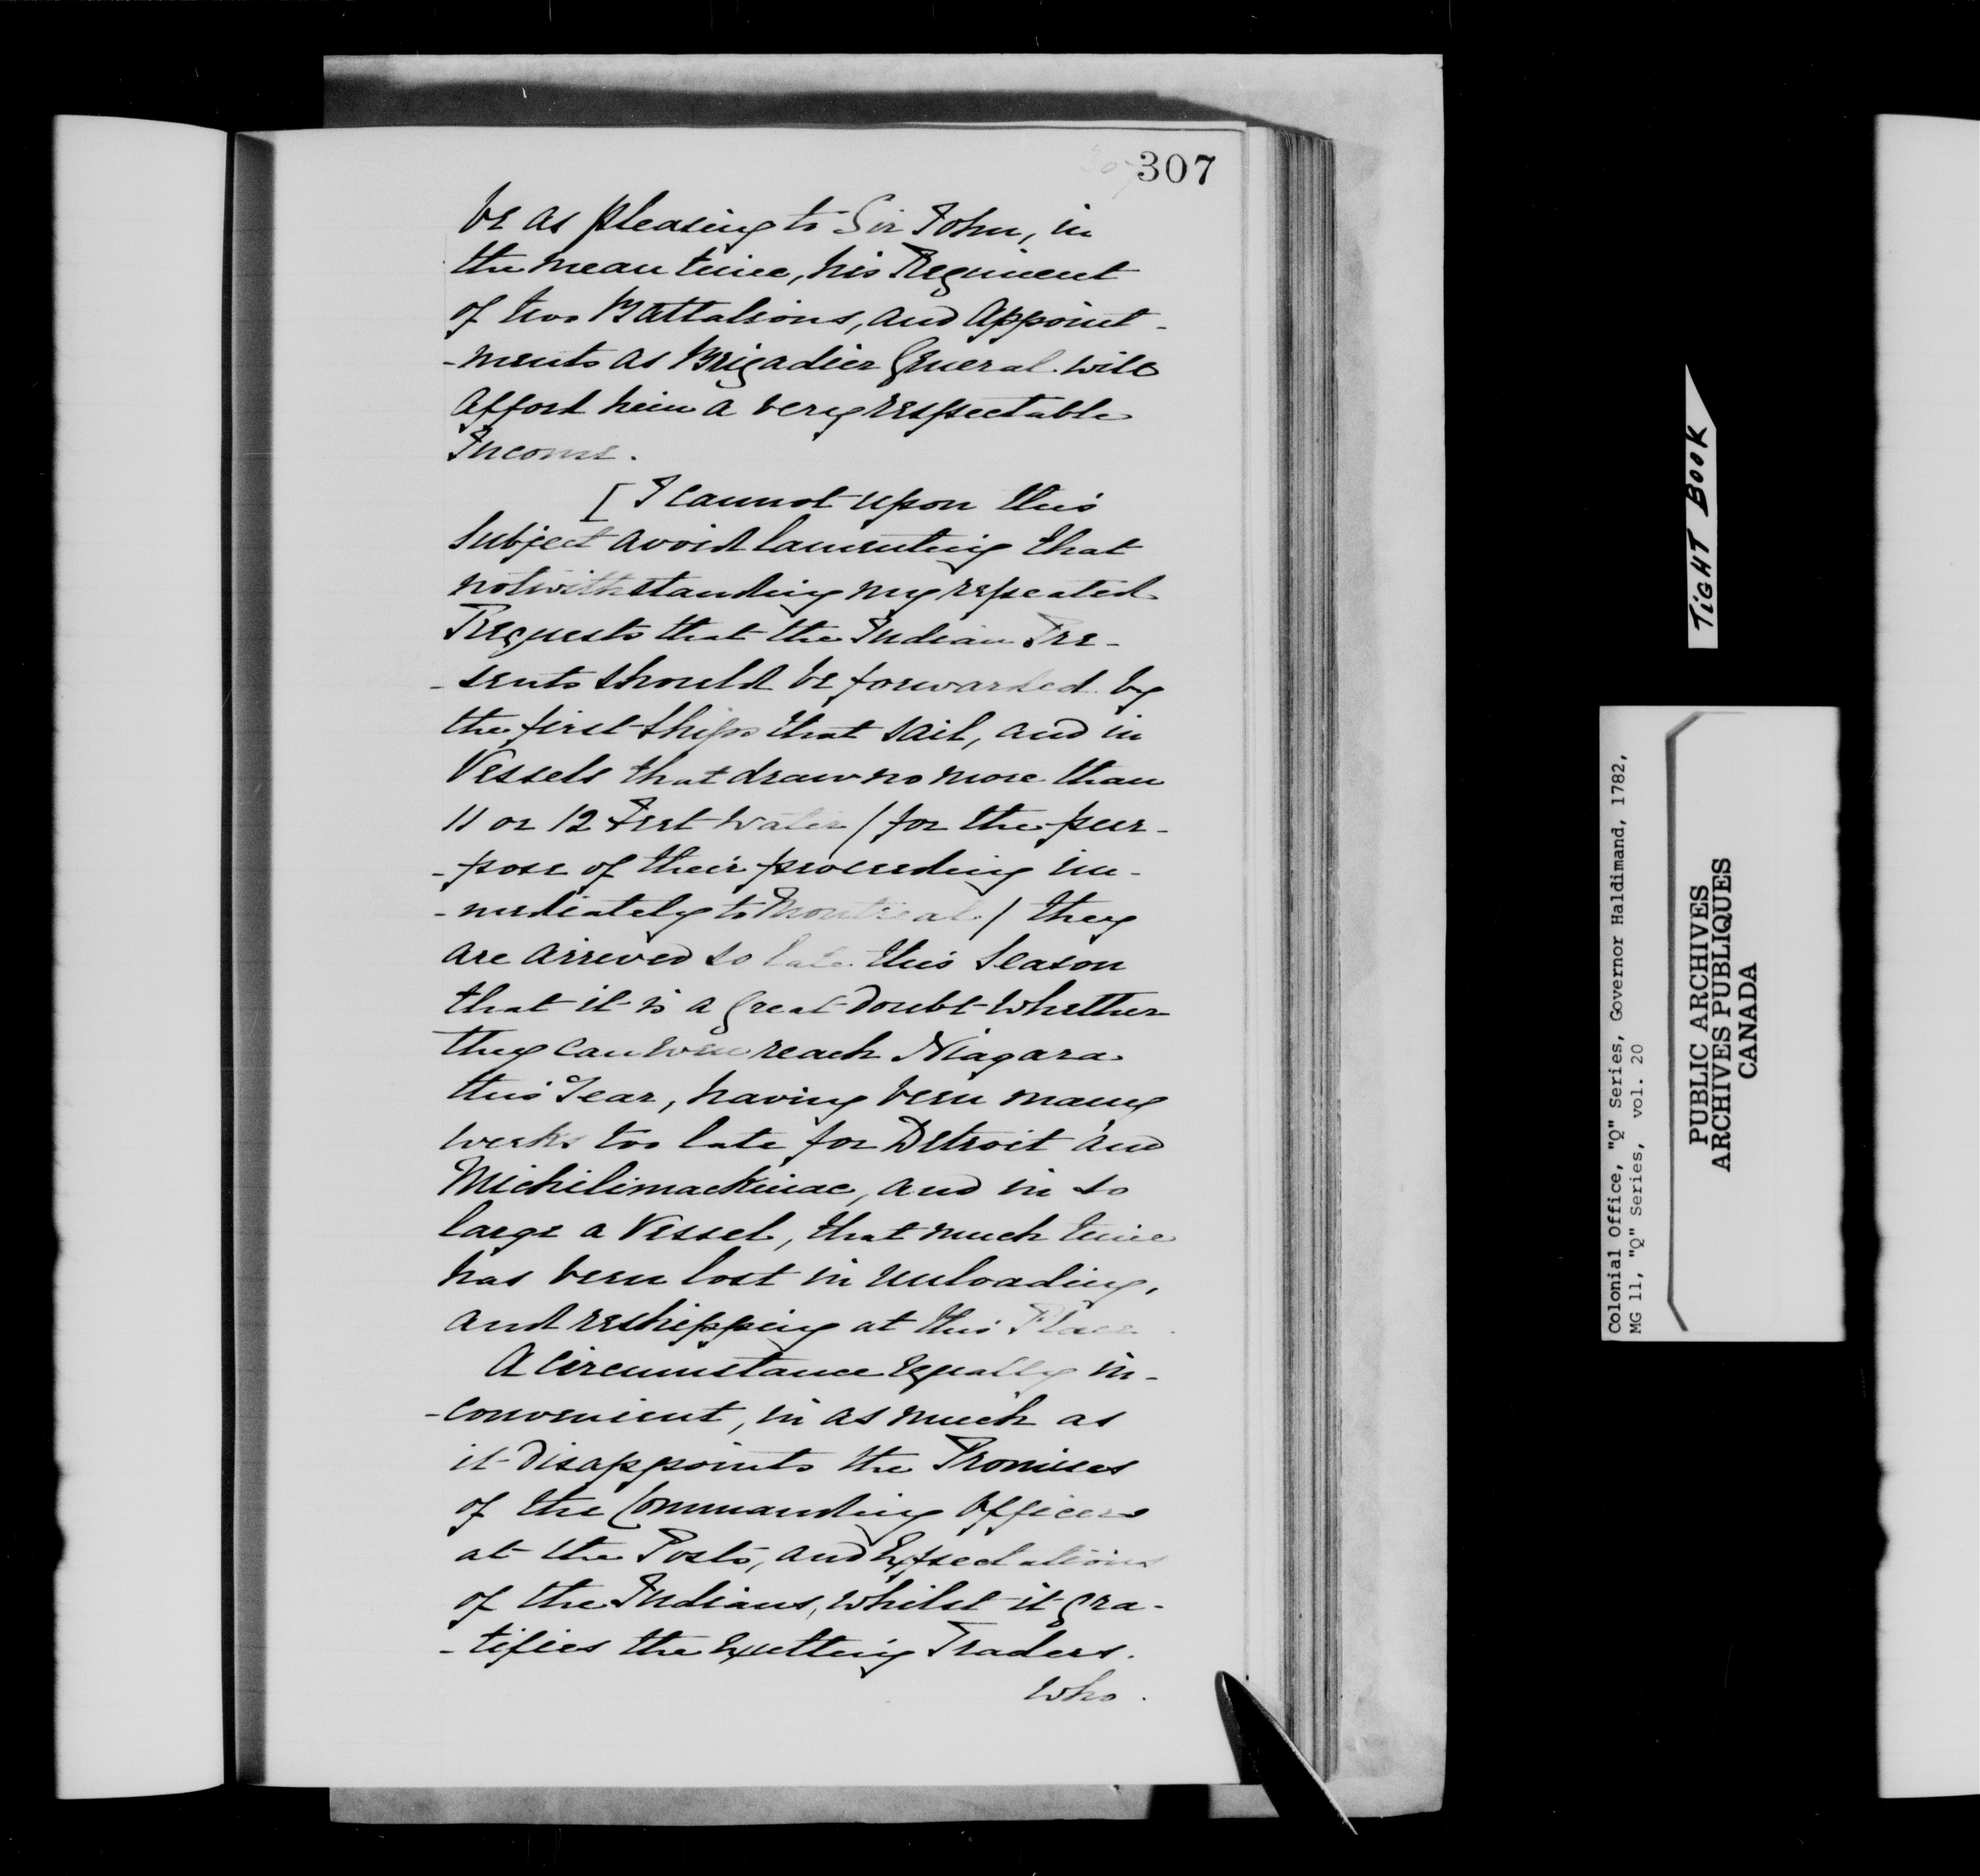 307
be as pleasing to Sir John, in
the mean time, his Regiment
of two Battalions, and appoint-
-ments as Brigadier General will
afford him a very respectable
Income.
[ I cannot upon this
subject avoid lamenting that
notwithstanding my repeated
Requests that the Indian Pre-
-sents should be forwarded by
the first ships that sail, and in
Vessels that draw no more than
11 or 12 Feet Water / for the pur-
-pose of their proceeding im-
-mediately to Montreal / they
are arrived so late this season
that it is a great doubt whether
they can even reach Niagara
this Year, having been many
weeks too late for Detroit and
Michilimackinac, and in so
large a Vessel, that much time
has been lost in unloading,
and reshipping at this Place.
A circumstance equally in-
-convenient, in as much as
it disappoints the Promises
of the Commanding Officers
at the Posts, and Expectations
of the Indians, whilst it gra-
-tifies the Exulting Traders.
who.
TIGHT BOOK
Colonial Office, "Q" Series, Governor Haldimand, 1782,
MG 11, "Q" Series, vol. 20
PUBLIC ARCHIVES
ARCHIVES PUBLIQUES
CANADA